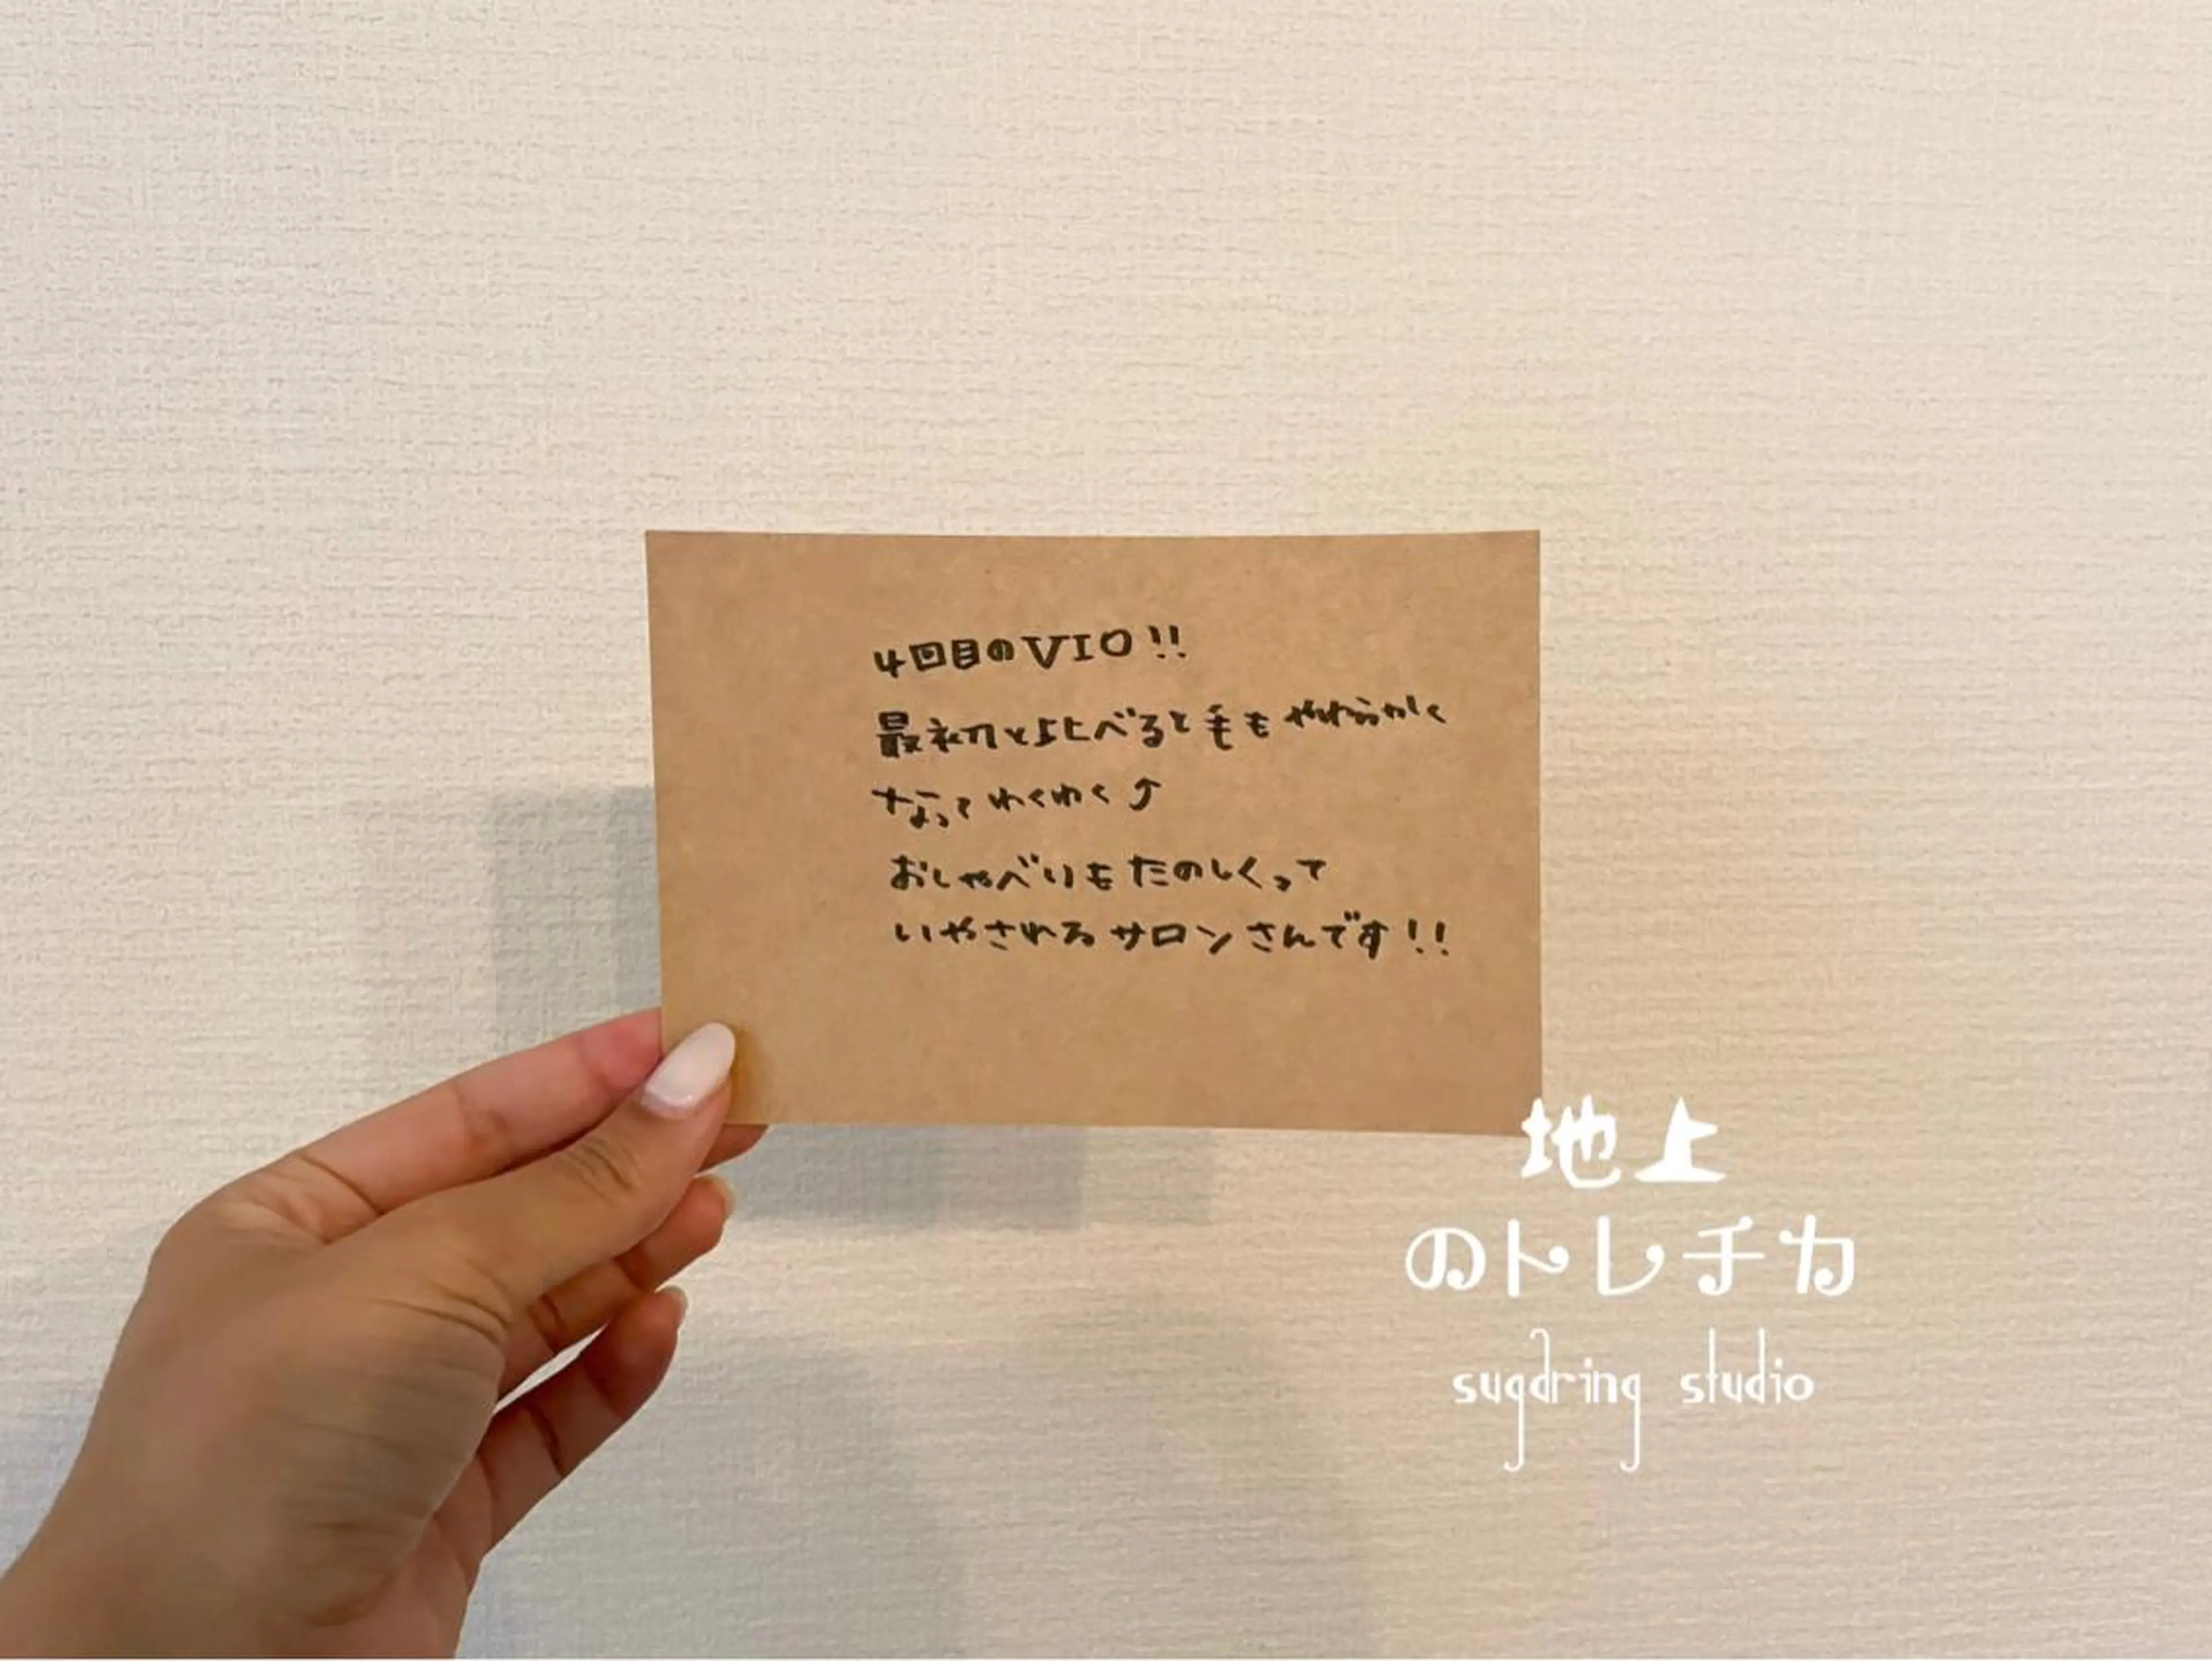 4回目のVIO!!
最初と比べると毛もやわらかく
なってわくわく⤴
おしゃべりもたのしくって
いやされるサロンさんです!!
地上
のトレチカ
sugaring studio